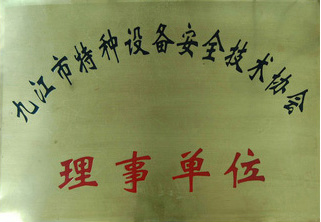 九江市特种设备安全技术协会
理事单位